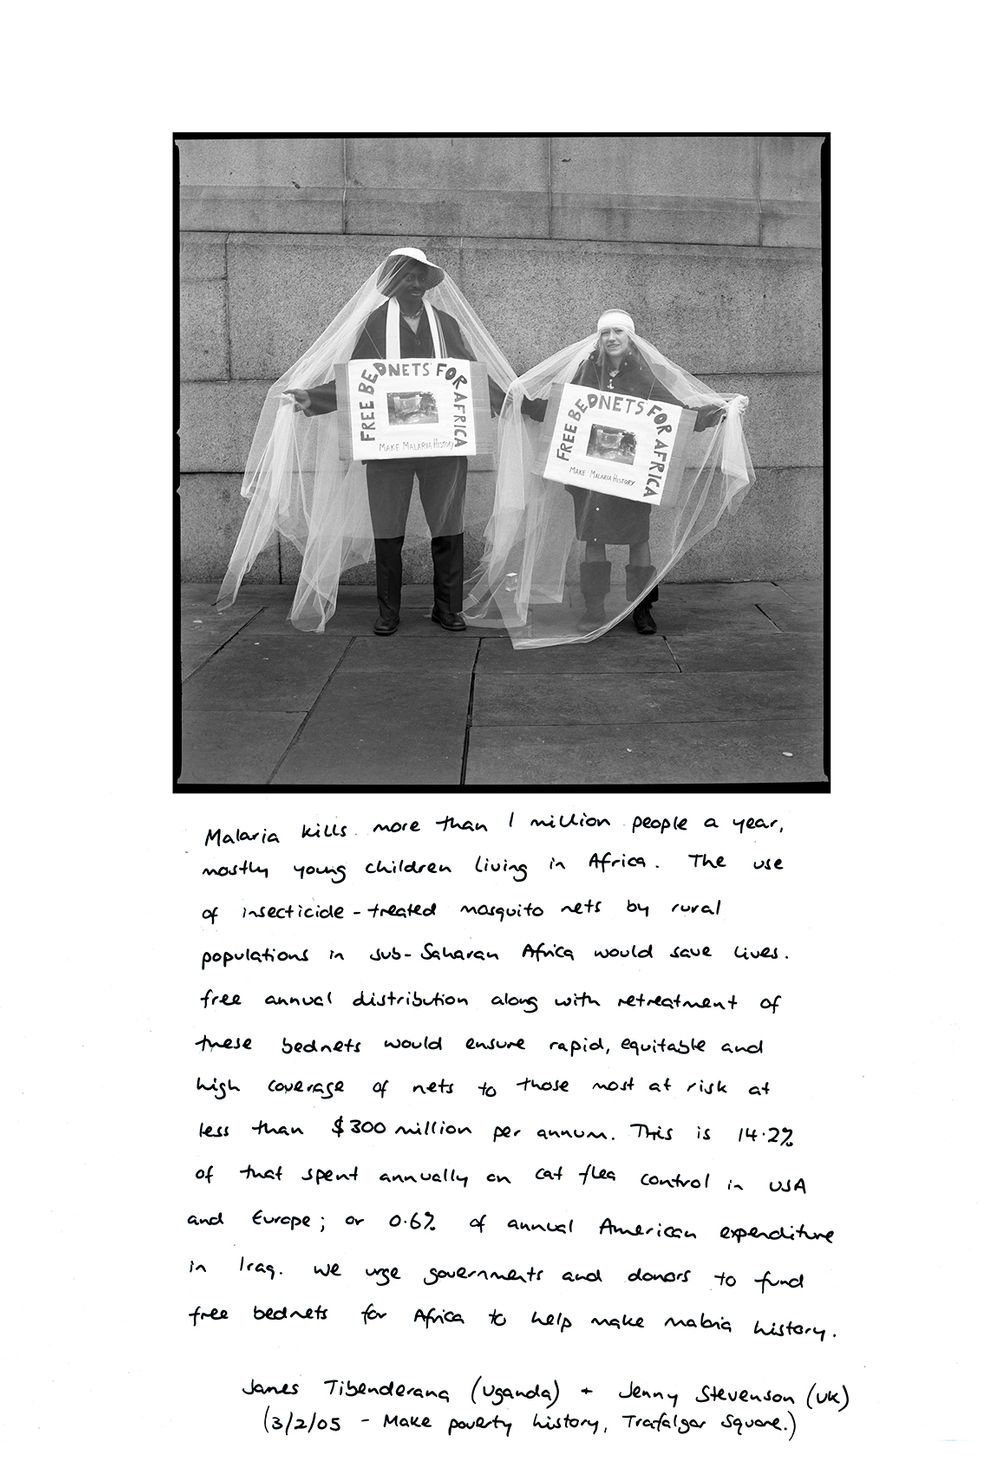 FREE BEDNETS FOR AFRICA
MAKE MALARIA HISTORY
FREE BEDNETS FOR AFRICA
MAKE MALARIA HISTORY
Malaria kills more than 1 million people a year,
mostly young children living in Africa. The use
of insecticide-treated mosquito nets by rural
populations in sub-Saharan Africa would save lives.
free annual distribution along with retreatment of
these bednets would ensure rapid, equitable and
high coverage of nets to those most at risk at
less than $300 million per annum. This is 14.2%
of that spent annually on cat flea control in USA
and Europe; or 0.6% of annual American expenditure
in Iraq. We urge governments and donors to fund
free bednets for Africa to help make malaria history.
James Tibenderana (Uganda) + Jenny Stevenson (UK)
(3/2/05 - Make poverty history, Trafalgar Square.)